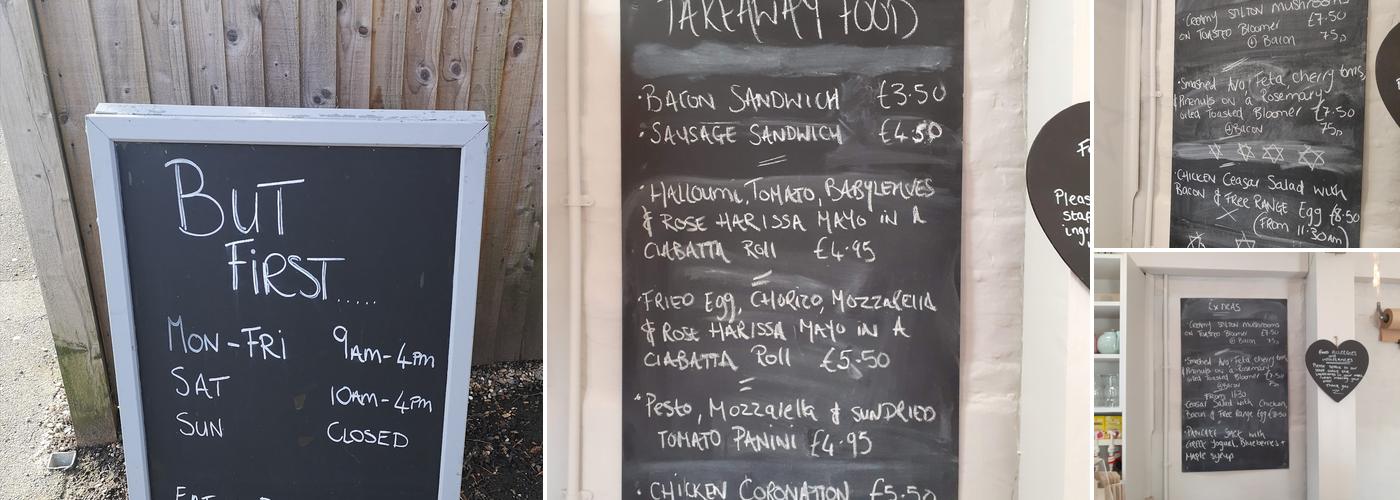 BUT
FIRST.....
MON-FRI 9AM-4PM
SAT 10AM-4PM
SUN CLOSED
TAKEAWAY FOOD
·BACON SANDWICH £3·50
·SAUSAGE SANDWICH £4·50
·HALLOUMI, TOMATO, BABYLEAVES
& ROSE HARISSA MAYO IN A
CIABATTA ROLL £4·95
·FRIED Egg, CHORIZO, MOZZARELLA
& ROSE HARISSA MAYO IN A
CIABATTA ROLL £5·50
·Pesto, Mozzarella & SUNDRIED
TOMATO PANINI £4·95
·CHICKEN CORONATION £5·50
Pleas
·Creamy STILTON mushrooms
ON TOASTED Bloomer £7·50
Bacon 75p
·Smashed Avo, Feta cherry toms,
on a Rosemary
Toasted Bloomer £7·50
Bacon 75p
·CHICKEN Ceasar Salad with
BACON & FREE RANGE Egg £8·50
(FROM 11:30am)
EXTRAS
·Creamy STILTON mushrooms
on Toasted Bloomer £7·50
Bacon 75p
·Smashed Avo, Feta cherry toms,
on a Rosemary
Toasted Bloomer £7·50
Bacon 75p
From 11:30
Ceasar Salad with Chicken,
Bacon & Free Range Egg £8·50
·PANCAKE Stack with
Yogurt, Blueberries +
Maple Syrup